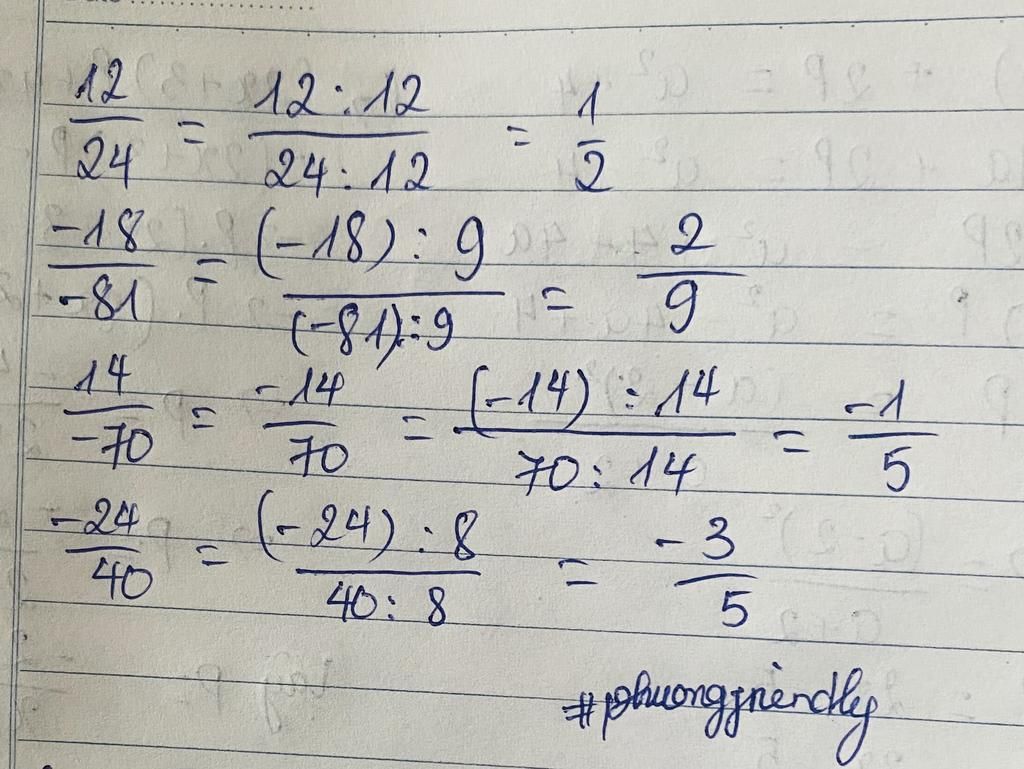 12/24 = 12 : 12 / 24 : 12 = 1/2
-18/-81 = (-18) : 9 / (-81) : 9 = 2/9
14/-70 = -14/70 = (-14) : 14 / 70 : 14 = -1/5
-24/40 = (-24) : 8 / 40 : 8 = -3/5
#phuongfriendly